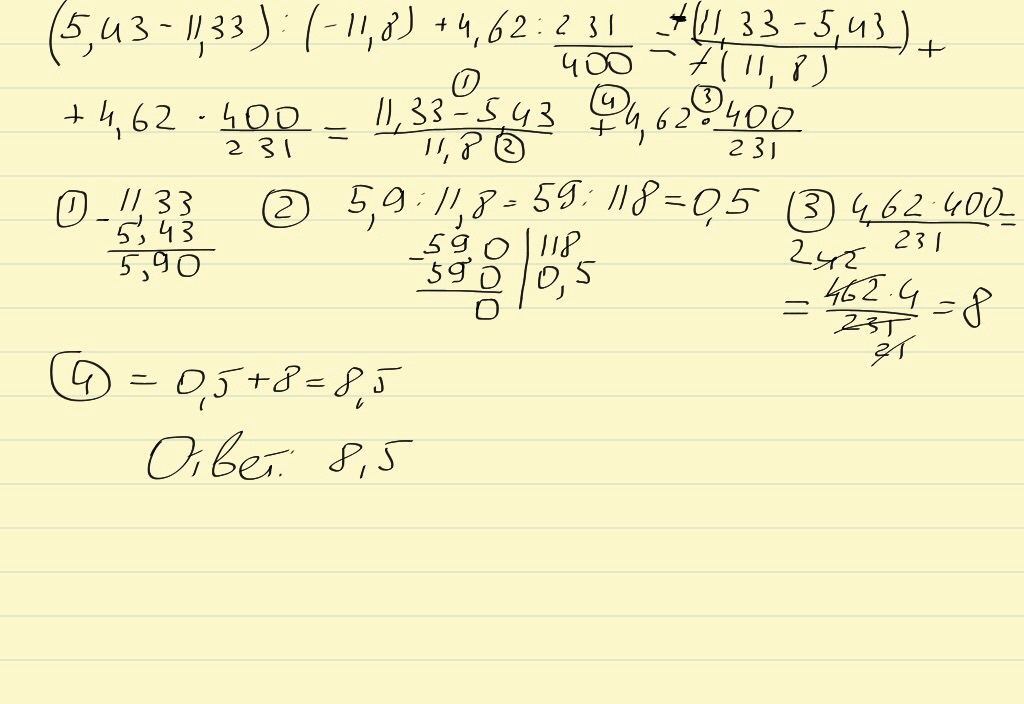 (5,43 - 11,33) : (-11,8) + 4,62 : 231/400 = -(11,33 - 5,43)/-(11,8) +
+ 4,62 · 400/231 = (11,33 - 5,43)/11,8 + 4,62 · 400/231
① ② ④ ③
① - 11,33 5,43 5,90
② 5,9 : 11,8 = 59 : 118 = 0,5
- 59,0 | 118
590 | 0,5
0
③ 4,62 · 400/231 =
= 462 · 4/231 = 8
④ = 0,5 + 8 = 8,5
Ответ: 8,5